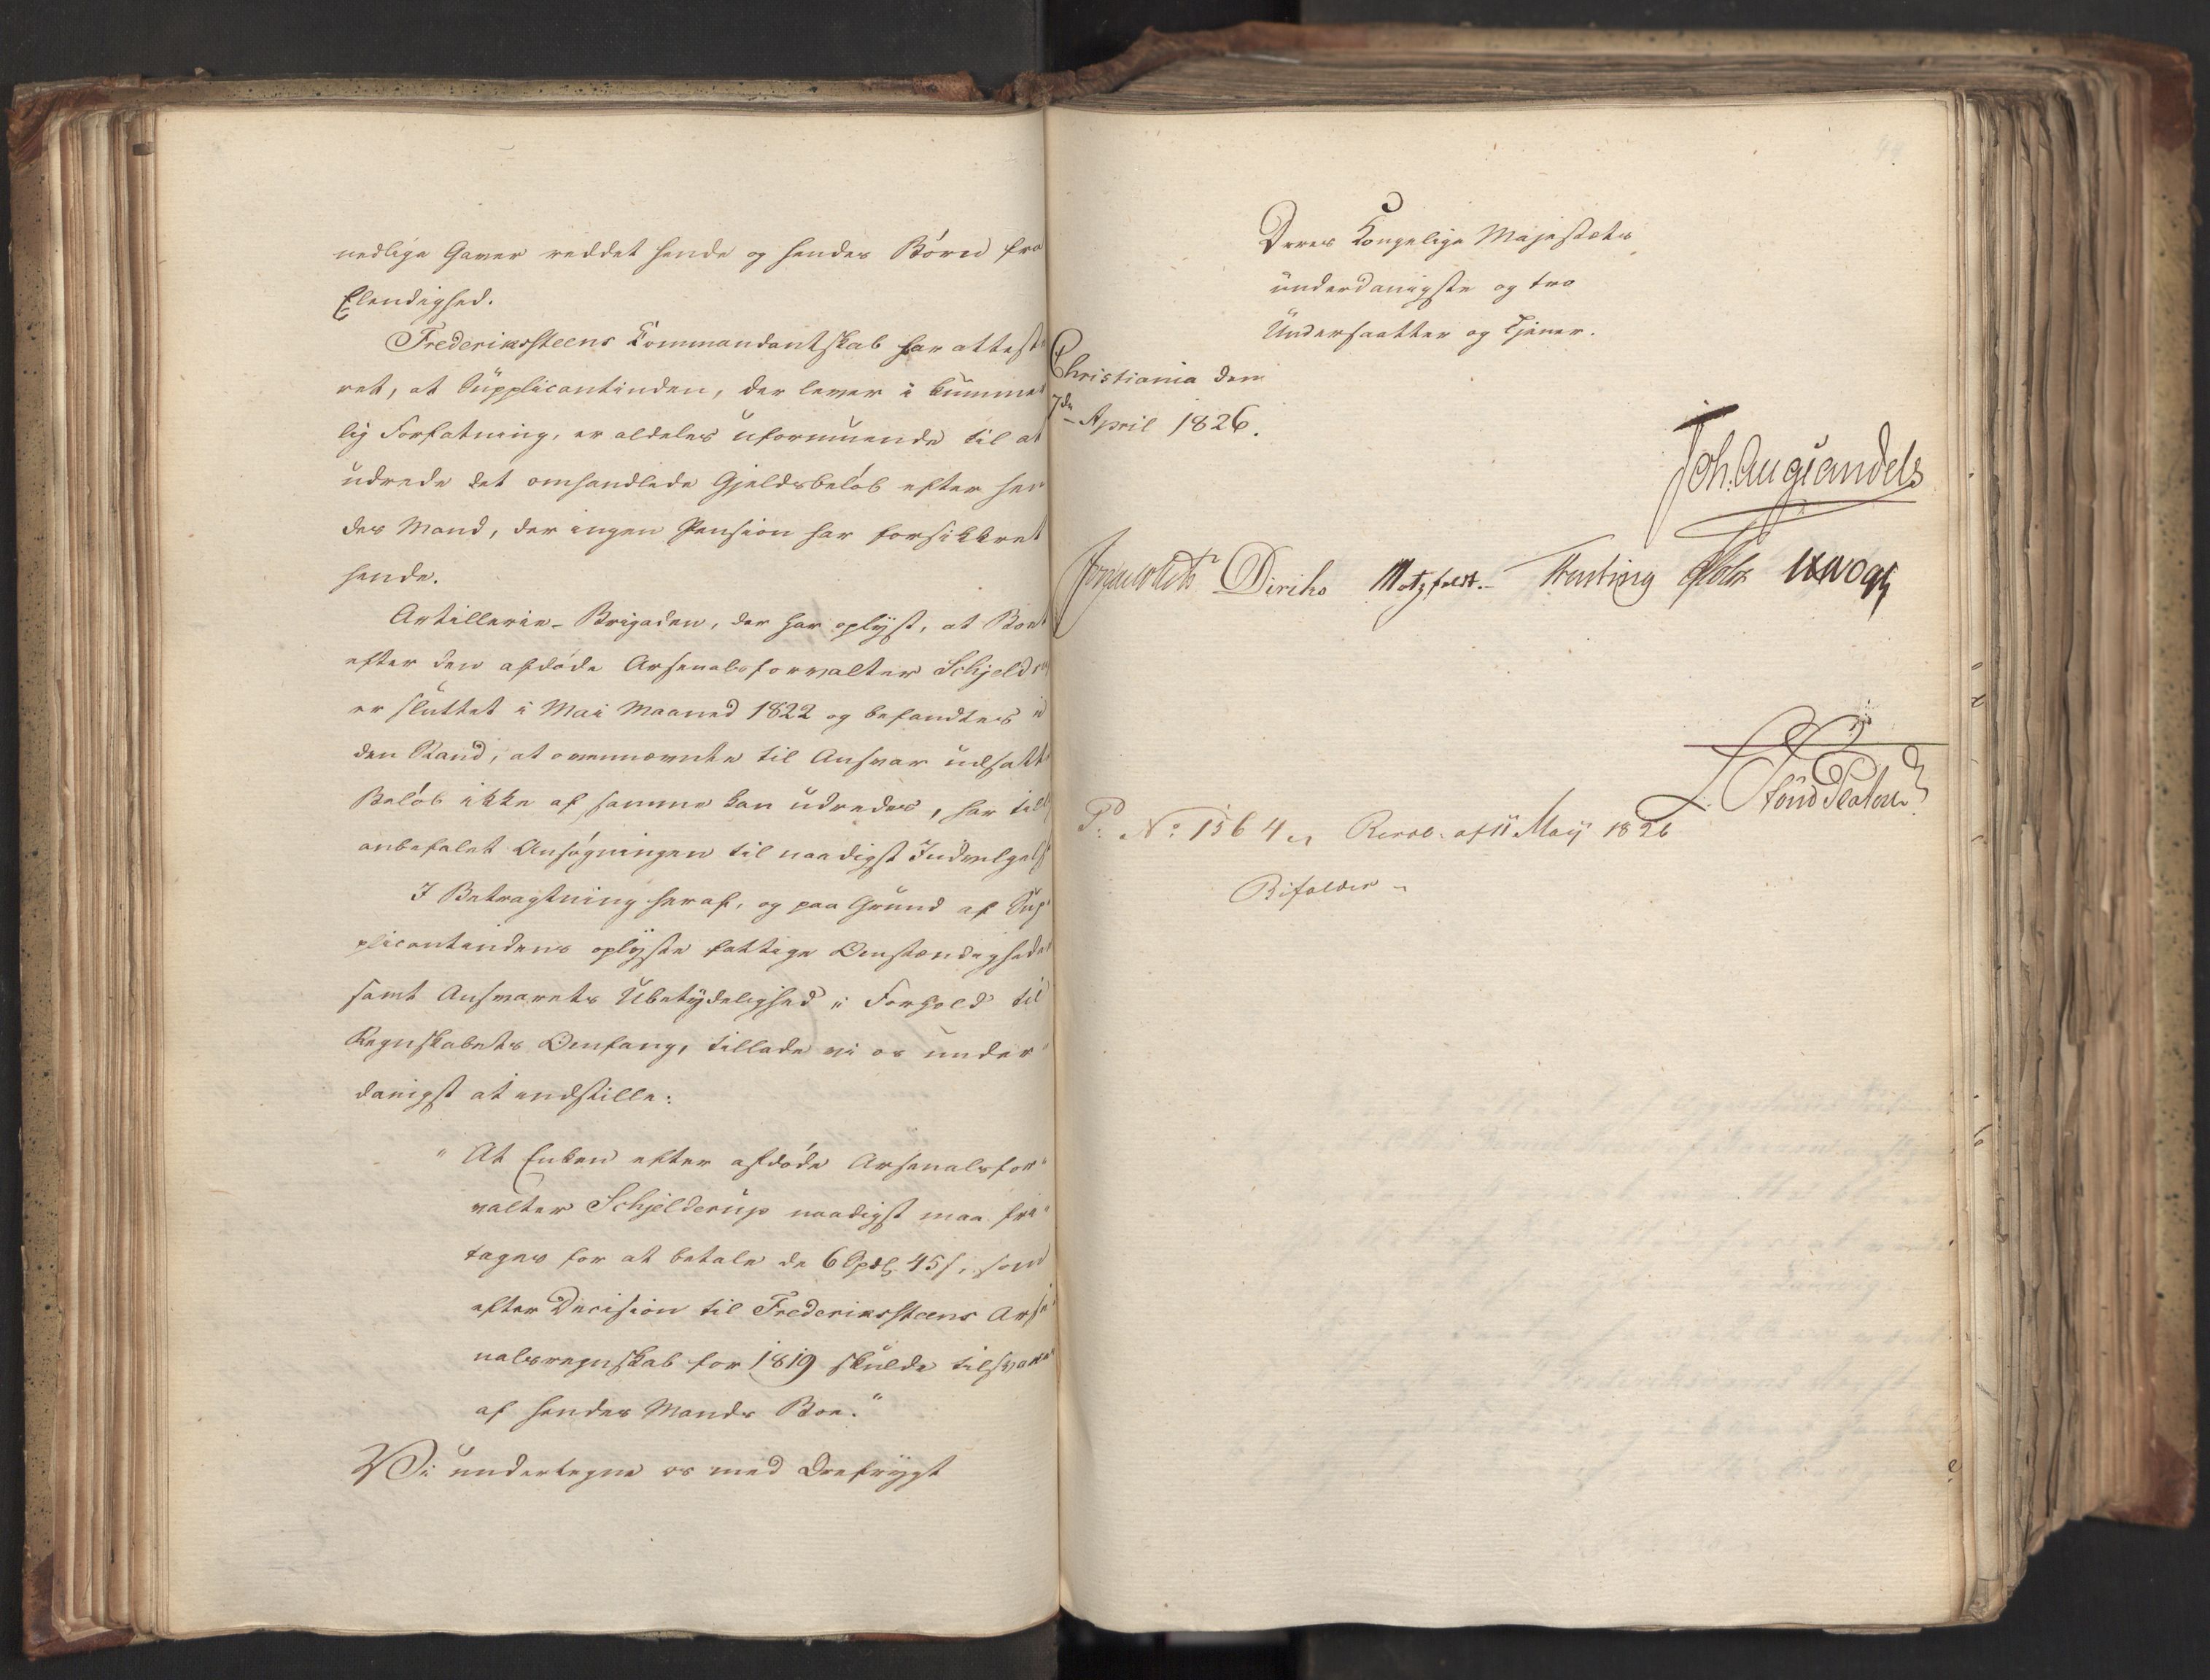 nedlige Gaver reddet hende og hendes Børn fra
Elendighed.
Frederikssteens Kommandantskab har atteste
ret, at Supplicantinden, der lever i kummer
lig Forfatning, er aldeles uformuende til at
udrede det omhandlede Gjeldsbeløb efter hen
des Mand, der ingen Pension har forsikkret
hende.
Artillerie-Brigaden, der har oplyst, at Boet
efter den afdøde Arsenalsforvalter Schjelderup
er sluttet i Mai Maaned 1822 og befandtes i
den Stand, at ovennævnte til Ansvar udsatte
Beløb ikke af samme kan udredes, har
anbefalet Ansøgningen til naadigst Indvilgelse
I Betragtning heraf, og paa Grund af Sup
plicantindens oplyste fattige Omstændigheder
samt Ansvarets Ubetydelighed i Forhold til
Regnskabets Omfang, tillade vi os under
danigst at indstille:
"At Enken efter afdøde Arsenalsfor
valter Schjelderup naadigst maa fri
tages for at betale de 6 Spdl 45 s, som
efter Decision til Frederikssteens Arse
nalsregnskab for 1819 skulde tilsvares
af hendes Mands Boe."
Vi undertegne os med Ærefrygt
Deres Kongelige Majestæts
underdanigste og tro
Undersaatter og Tjener.
Christiania den
7de April 1826.
Joh. Aug Sandels
Diriks Motzfeldt. Krebting Holst
P: No 1564 Resol. af 11 May 1826
Bifaldes